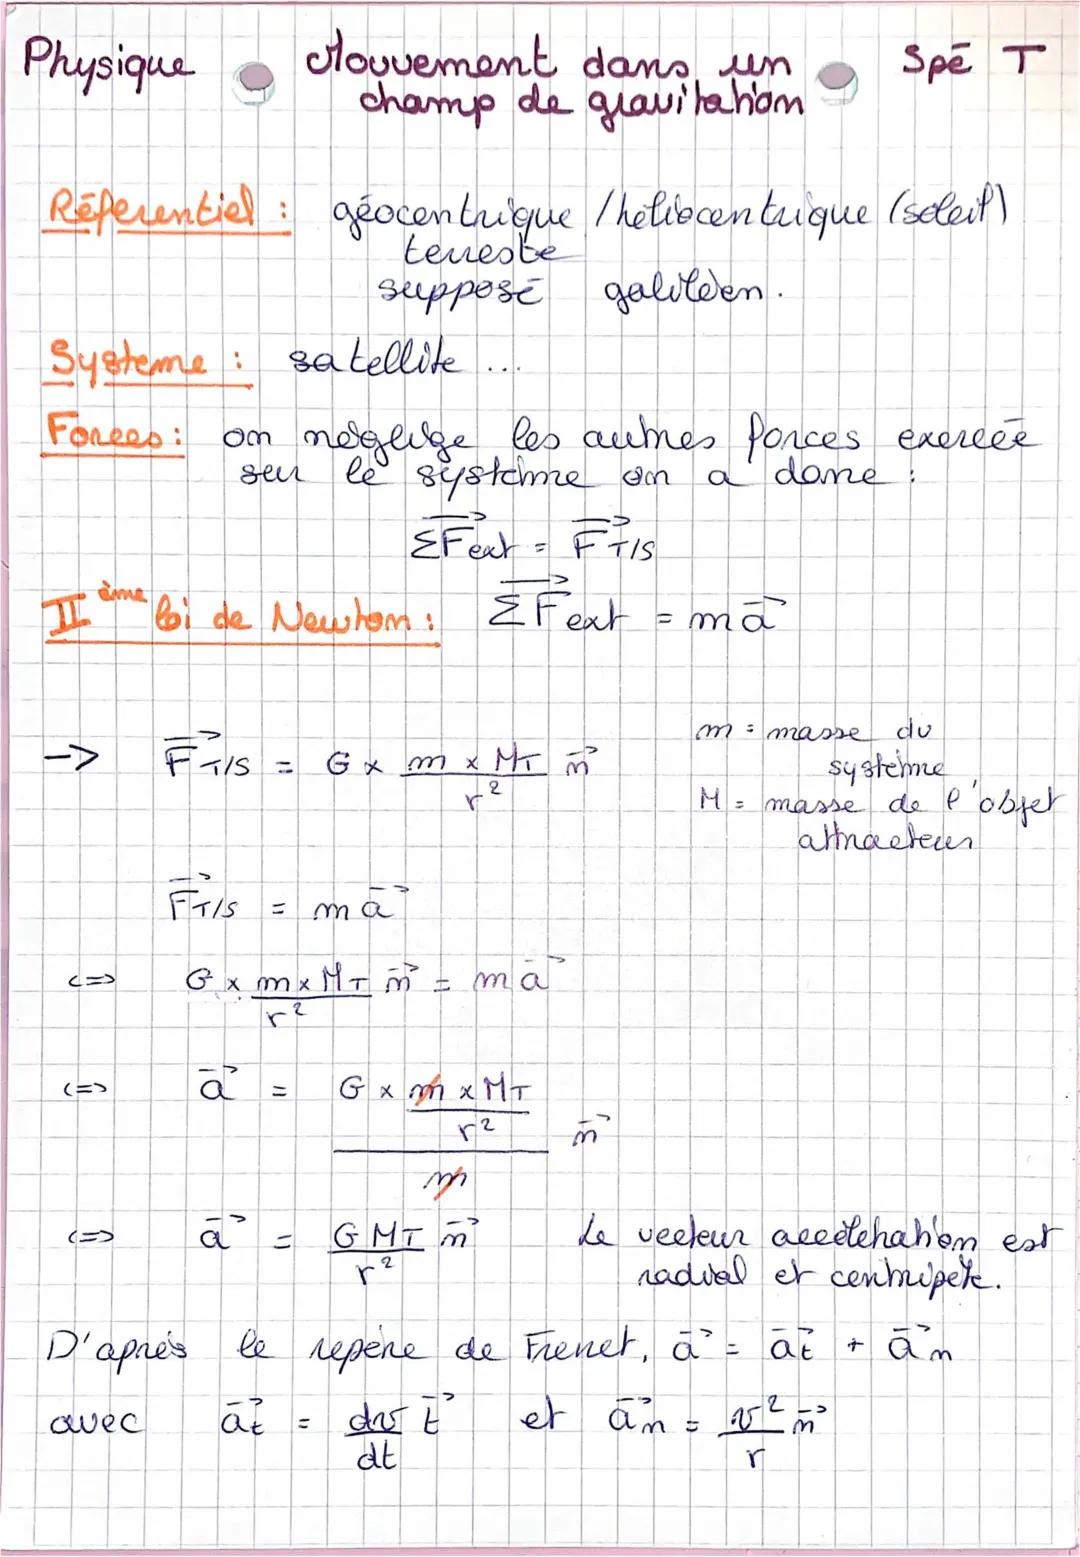 Physique Mouvement dans un Spé T
champ de gravitation
Réferentiel : géocentrique / héliocentrique (soleil)
terrestre
supposé galiléen.
Système : satellite ...
Forces : on néglige les autres forces exercée
sur le système on a donc :
ΣF⃗ext = F⃗T/S
IIème loi de Newton : ΣF⃗ext = ma⃗
-> F⃗T/S = G × (m × MT)/r² n⃗
m = masse du
système
M = masse de l'objet
attracteur
F⃗T/S = ma⃗
<=> G × (m × MT)/r² n⃗ = ma⃗
<=> a⃗ = (G × (m × MT)/r²)/m n⃗
<=> a⃗ = GMT/r² n⃗ Le vecteur accélération est
radial et centripète.
D'après le repère de Frenet, a⃗ = a⃗t + a⃗n
avec a⃗t = dv/dt t⃗ et a⃗n = v²/r n⃗